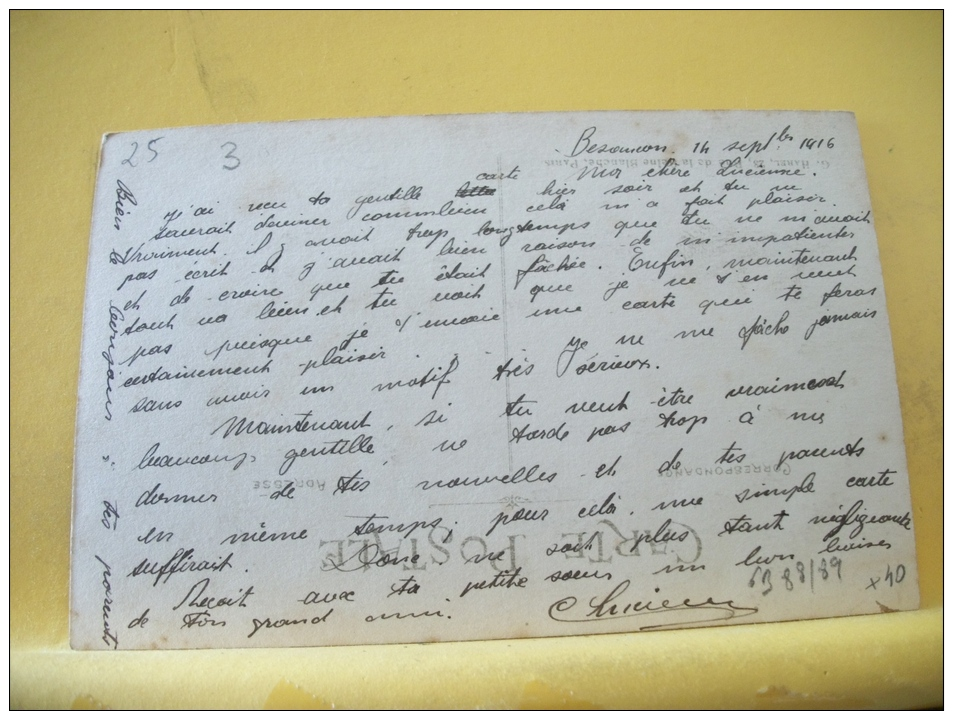 25 3
Besancon. 14 septbre 1916
Mor chère Lucienne.
j'ai recu ta gentille carte hier soir et tu ne
saurait deviner commbien cela m'a fait plaisir.
Vraiment. il y avait trop longtemps que tu ne m'avait
pas écrit et j'avait bien raison de m'impatienter
et de croire que tu était fâchée. Enfin, maintenant
tout va bien et tu voit que je ne t'en veut
pas puisque je t'envoie une carte qui te feras
certainement plaisir. je ne me fâche jamais
sans avoir un motif très sérieux.
Maintenant, si tu veut être vraiment
beaucoup gentille, ne tarde pas trop à me
donner de tes nouvelles et de tes parents
en même temps; pour celà, une simple carte
suffirait. Donc ne soit plus tant négligeante
Reçoit avec ta petite soeur un bon baiser
de ton grand ami.
Lucien
Bien le bonjour à tes parents
CARTE POSTALE
CORRESPONDANCE
ADRESSE
63 88/89
x40